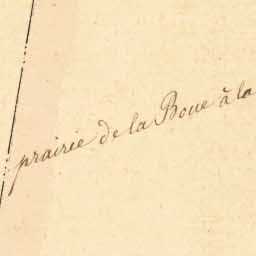 prairie de la Boue à la